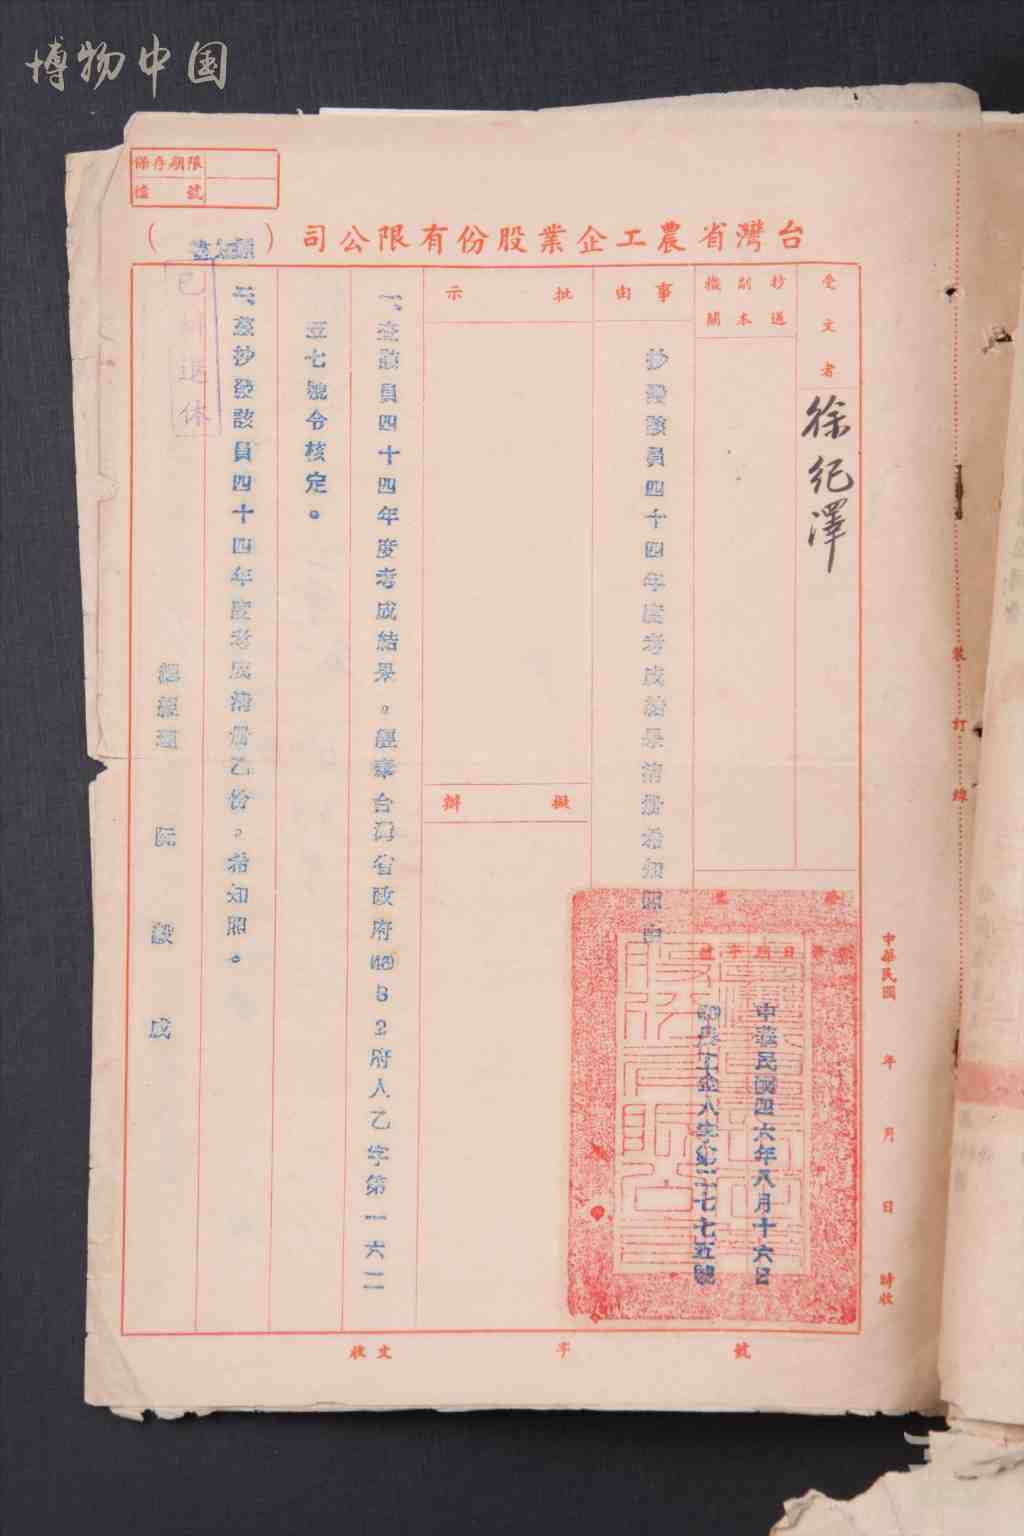 博物中国
保存期限
檔號
台灣省農工企業股份有限公司（）
受文者
徐紀澤
抄送副本機關
事由
抄發該員四十四年度考成結果清冊希知照由
中華民國四六年八月十六日
日期字號
批示
擬辦
一、查該員四十四年度考成結果。經奉台灣省政府(46)82府人乙字第一六二
五七號令核定。
二、茲抄發該員四十四年度考成清冊乙份。希知照。
總經理 阮毅成
已 退休
中華民國 年 月 日 時收
收文 字 號
裝訂線